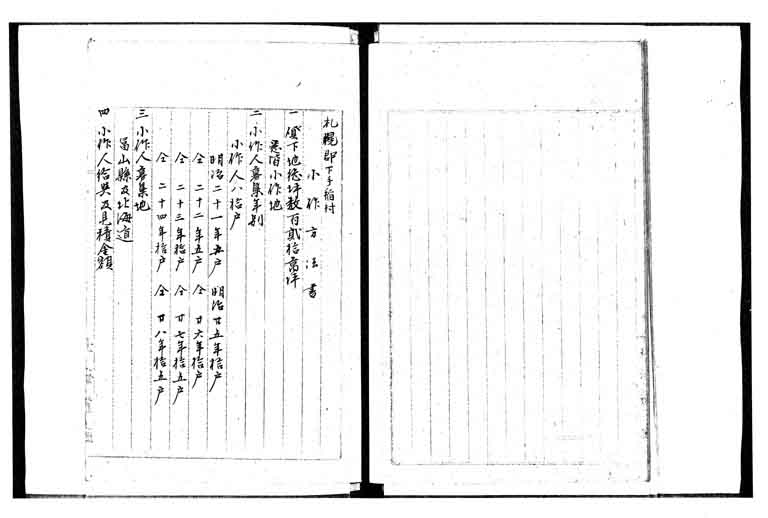 札幌郡下手稲村
小作方法書
一 貸下地総坪数百貳拾萬坪
悉皆小作地
二 小作人募集年別
小作人八拾戸
明治二十一年五戸 明治廿五年拾戸
仝 二十二年五戸 仝 廿六年拾戸
仝 二十三年拾戸 仝 廿七年拾五戸
仝 二十四年拾戸 仝 廿八年拾五戸
三 小作人募集地
富山縣及北海道
四 小作人給與及見積金額